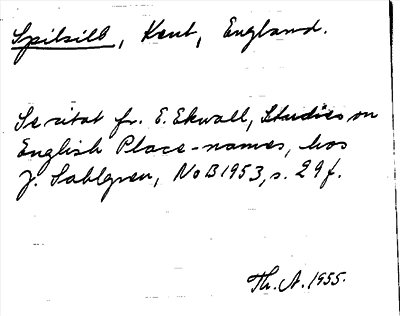 Spilsill, Kent, England.
Se citat fr. E. Ekwall, Studies on
English Place-names, hos
J. Sahlgren, NoB 1953, s. 29 f.
Th. A. 1955.